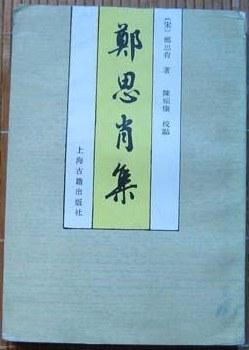 [宋] 鄭思肖 著 陳福康 校點
鄭思肖集
上海古籍出版社